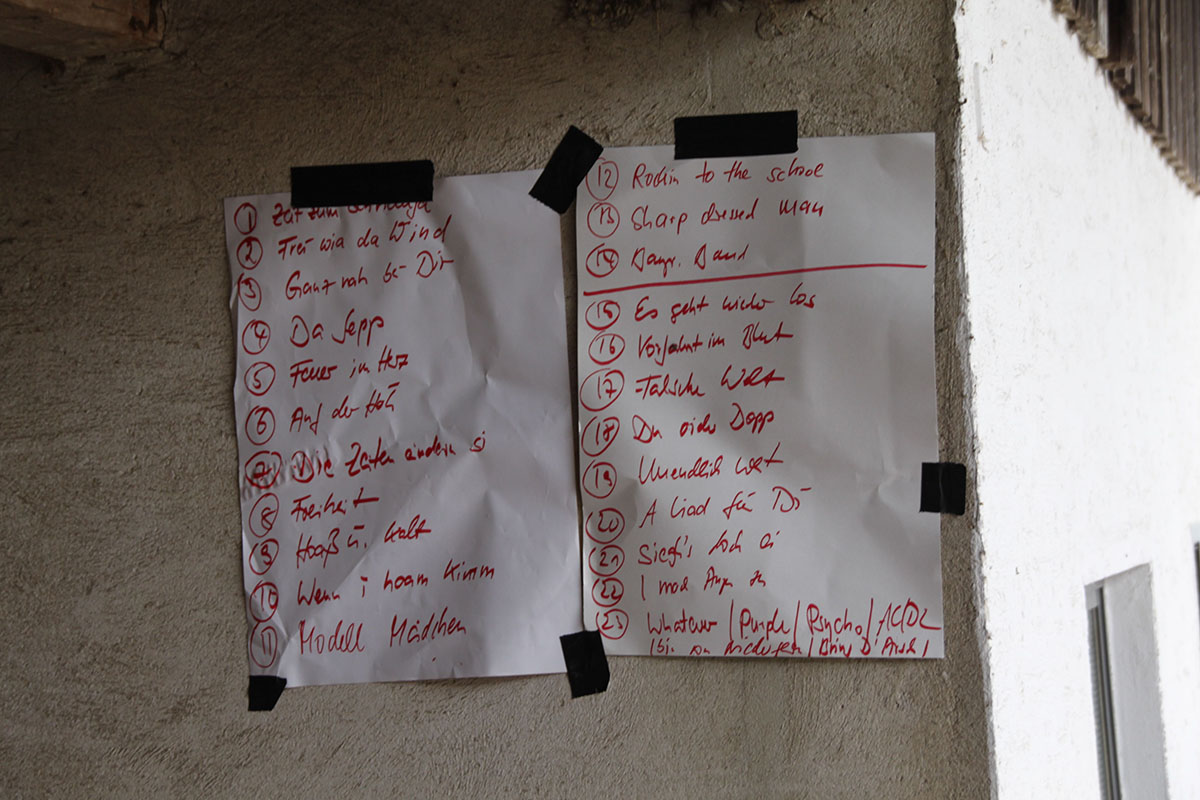 1 Zeit zum
2 Frei wia da Wind
3 Ganz nah bei Dir
4 Da Sepp
5 Feuer im Herz
6 Auf der Höh
7 Die Zeiten ändern si
8 Freiheit
9 Hoaß u. kalt
10 Wenn i hoam kimm
11 Modell Mädchen
12 Rockin to the school
13 Sharp dressed man
14 Bayr. Band
15 Es geht wieder los
16 Vorfahrt im Blut
17 Falsche Welt
18 Du Depp
19 Unendlich weit
20 A Liad für Di
21 Siegt's doch ei
22 I mach Augn zu
23 Whatever / Purple / Psycho / AC/DC